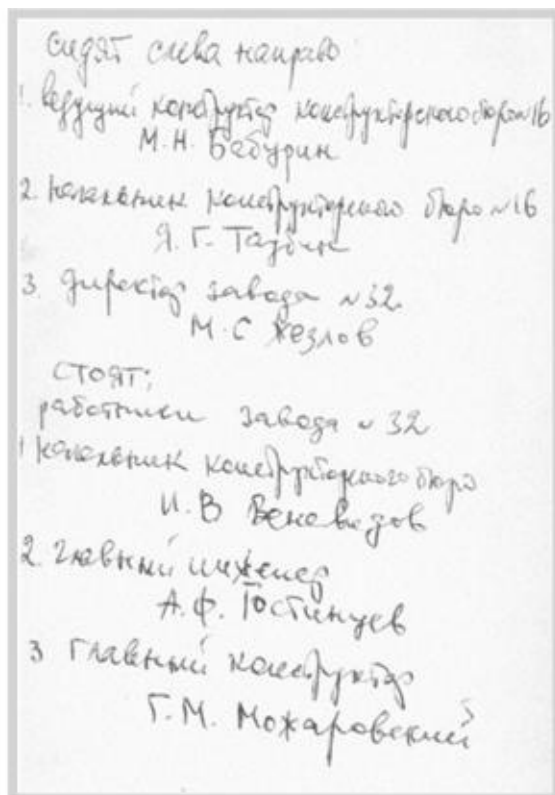 сидят слева направо:
1. ведущий конструктор конструкторского бюро №16
М.Н. Бабурин
2. начальник конструкторского бюро №16
Я.Г. Таубин
3. директор завода №32
М.С Жезлов
СТОЯТ:
работники завода №32
1 начальник конструкторского бюро
И.В Веневидов
2. главный инженер
А.Ф. Гостинцев
3 главный конструктор
Г.М. Можаровский